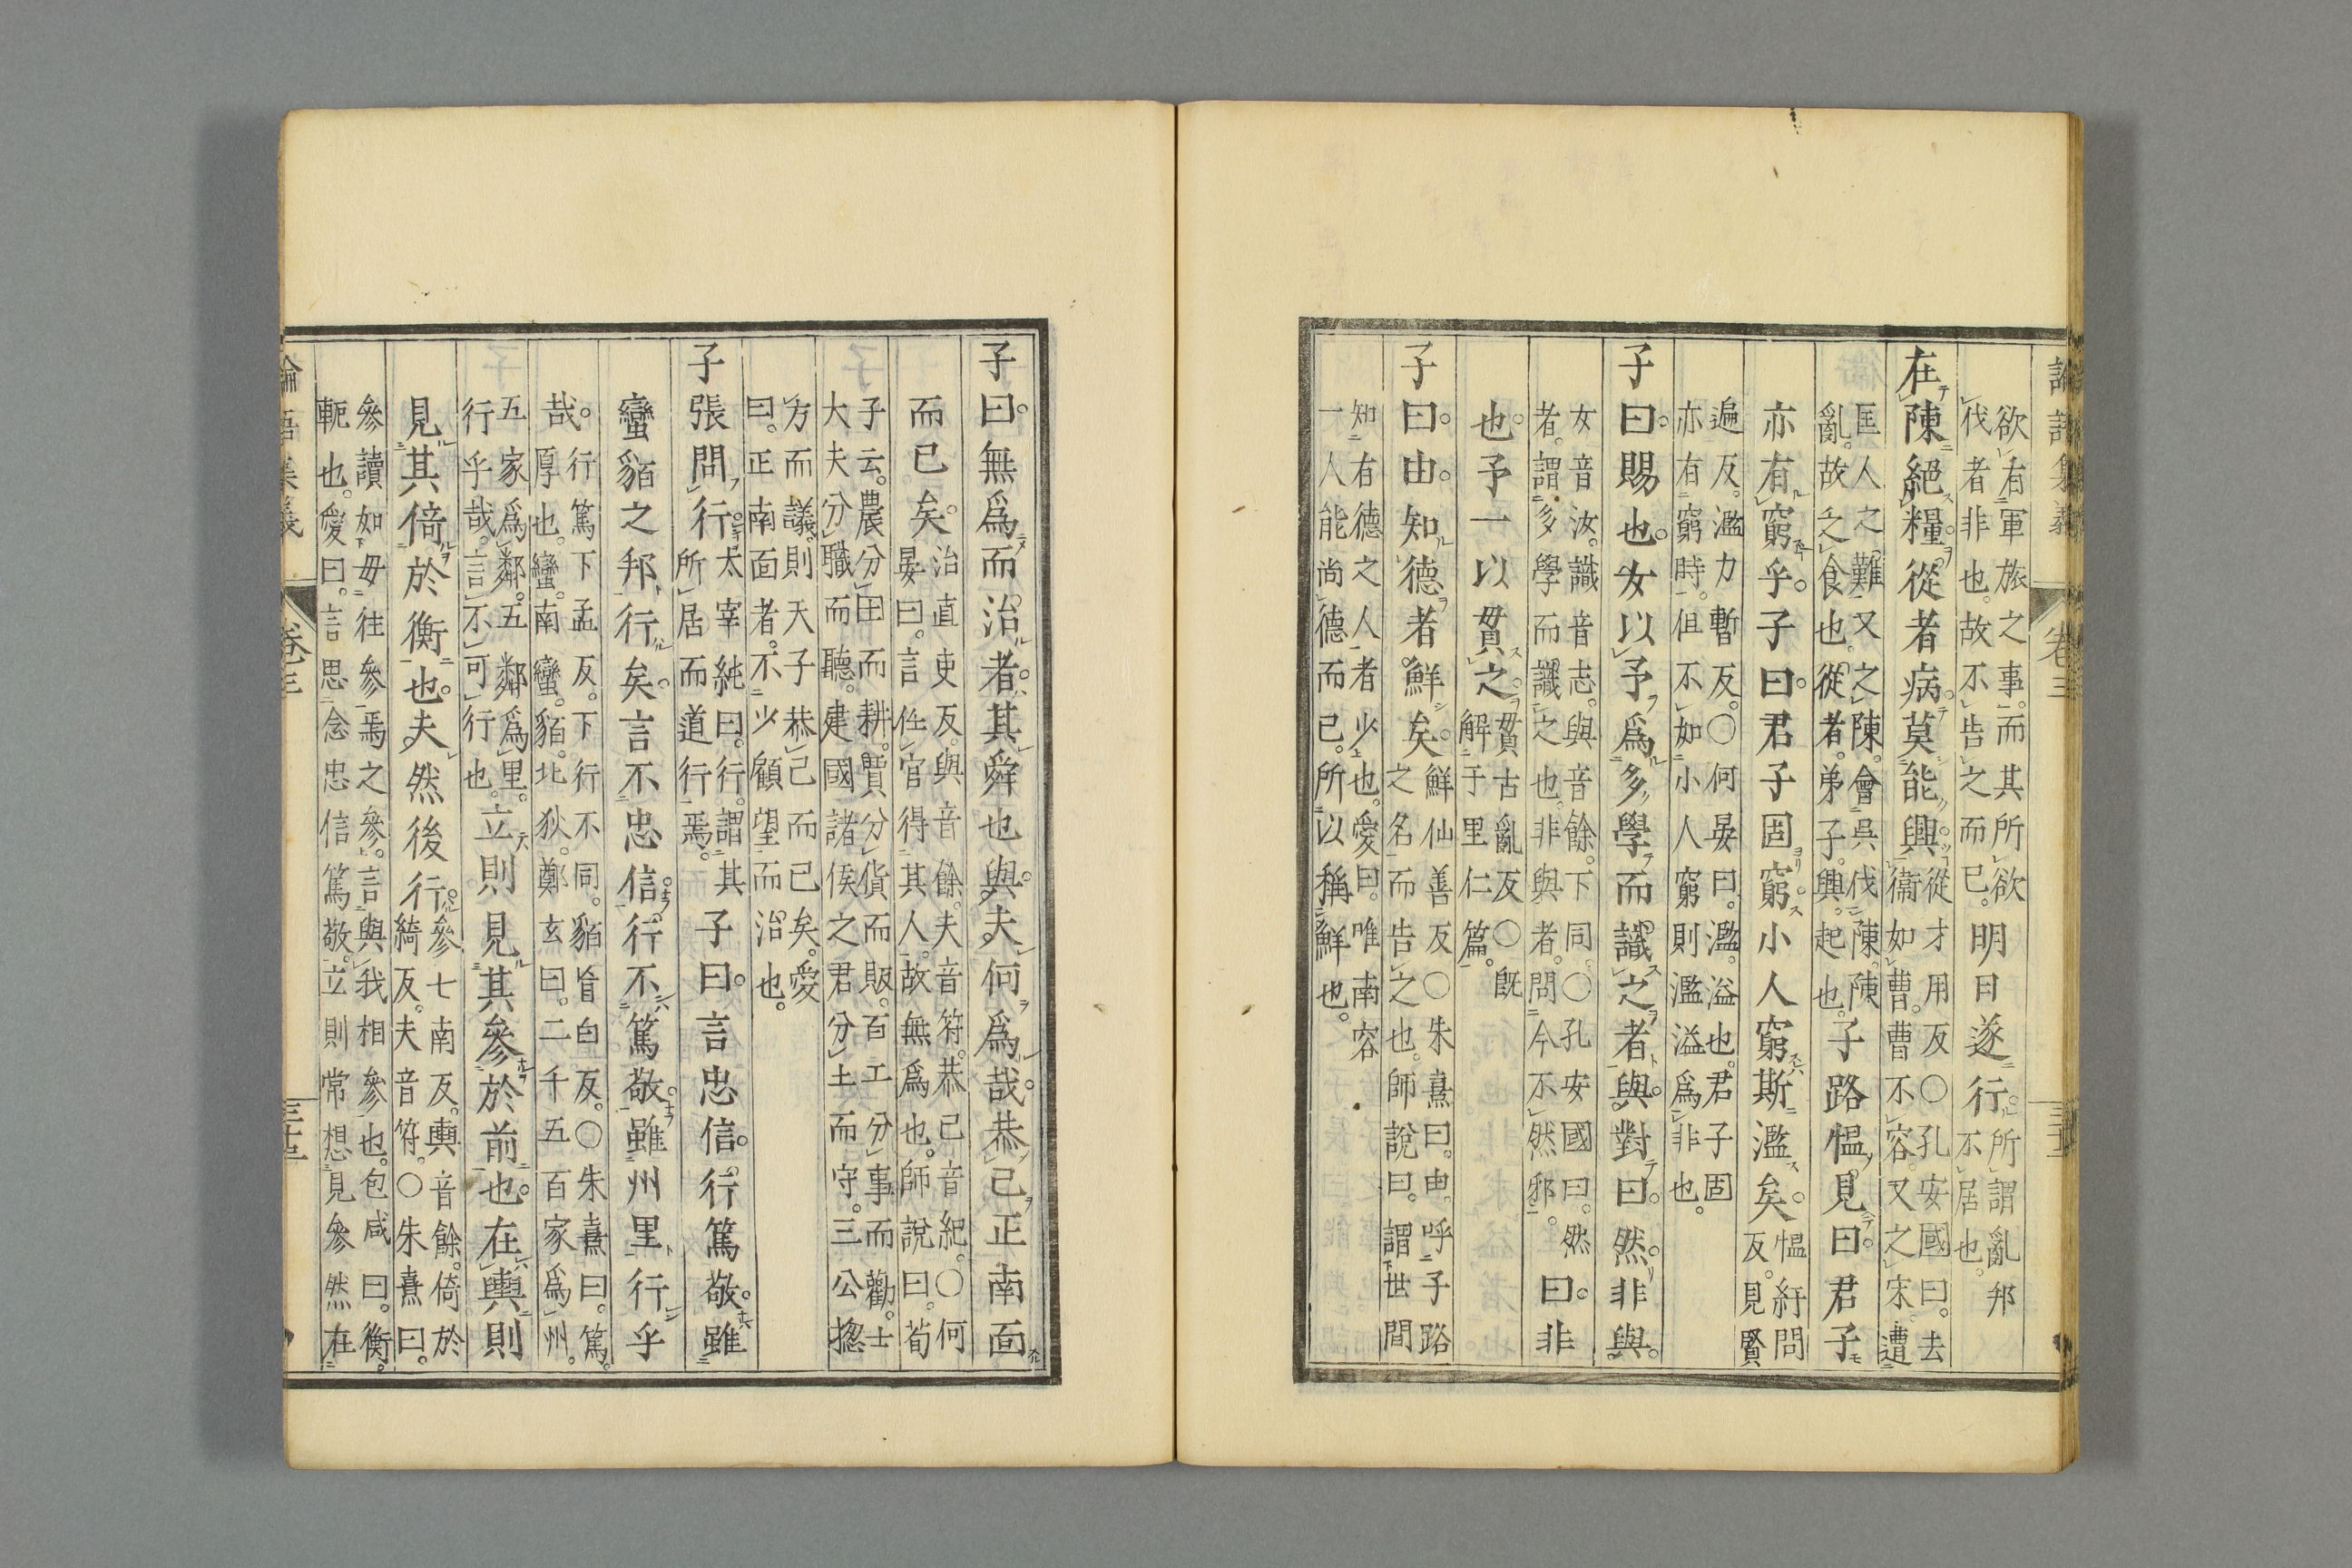 欲有軍旅之事。而其所欲
伐者非也。故不告之而已。
明日遂行。
所謂亂邦
不居也。
在陳絕糧。從者病。莫能興。
從才用反〇孔安國曰。去
衞如曹。曹不容。又之宋。遭
匡人之難。又之陳。會吳伐陳。陳
亂。故乏食也。從者。弟子。興。起也。
子路慍見曰。君子
亦有窮乎。子曰。君子固窮。小人窮斯濫矣。
慍紆問
反。見賢
遍反。濫力暫反。〇何晏曰。濫。溢也。君子固
亦有窮時。但不如小人窮則濫溢爲非也。
子曰。賜也。女以予爲多學而識之者與。對曰。然。非與。
女音汝。識音志。與音餘。下同。〇孔安國曰。然
者。謂多學而識之也。非與者。問今不然邪。
曰。非
也。予一以貫之。
貫古亂反〇旣
解于里仁篇。
子曰。由。知德者鮮矣。
鮮仙善反〇朱熹曰。由。呼子路
之名而告之也。師說曰。謂世間
知有德之人者少也。愛曰。唯南容
一人能尚德而已。所以稱鮮也。
論語集義 卷三
子曰。無爲而治者。其舜也與。夫何爲哉。恭己正南面
而已矣。
治直吏反。與音餘。夫音符。恭己音紀。〇何
晏曰。言任官得其人。故無爲也。師說曰。荀
子云。農分田而耕。賈分貨而販。百工分事而勸。士
大夫分職而聽。建國諸侯之君分土而守。三公摠
方而議。則天子恭己而已矣。愛
曰。正南面者。不少顧望而治也。
子張問行。
太宰純曰。行。謂其
所居而道行焉。
子曰。言忠信。行篤敬。雖
蠻貊之邦行矣。言不忠信。行不篤敬。雖州里行乎
哉。
行篤下孟反。下行不同。貊旨白反。〇朱熹曰。篤。
厚也。蠻。南蠻。貊。北狄。鄭玄曰。二千五百家爲州。
五家爲鄰。五鄰爲里。
行乎哉。言不可行也。
立則見其參於前也。在輿則
見其倚於衡也。夫然後行。
參七南反。輿音餘。倚於
綺反。夫音符。〇朱熹曰。
參讀如毋往參焉之參。言與我相參也。包咸曰。衡。
軛也。愛曰。言思念忠信篤敬。立則常想見參然在
論語集義 卷三